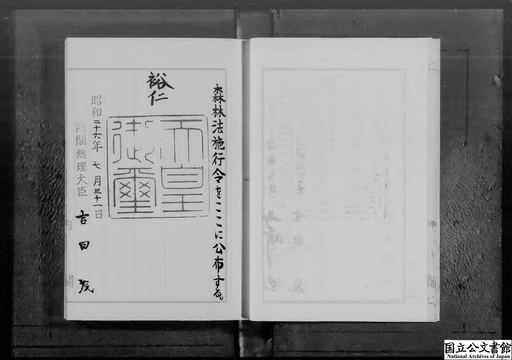 森林法施行令をここに公布する。
裕仁
天皇御璽
昭和二十六年七月三十一日
内閣総理大臣 吉田茂
国立公文書館
National Archives of Japan